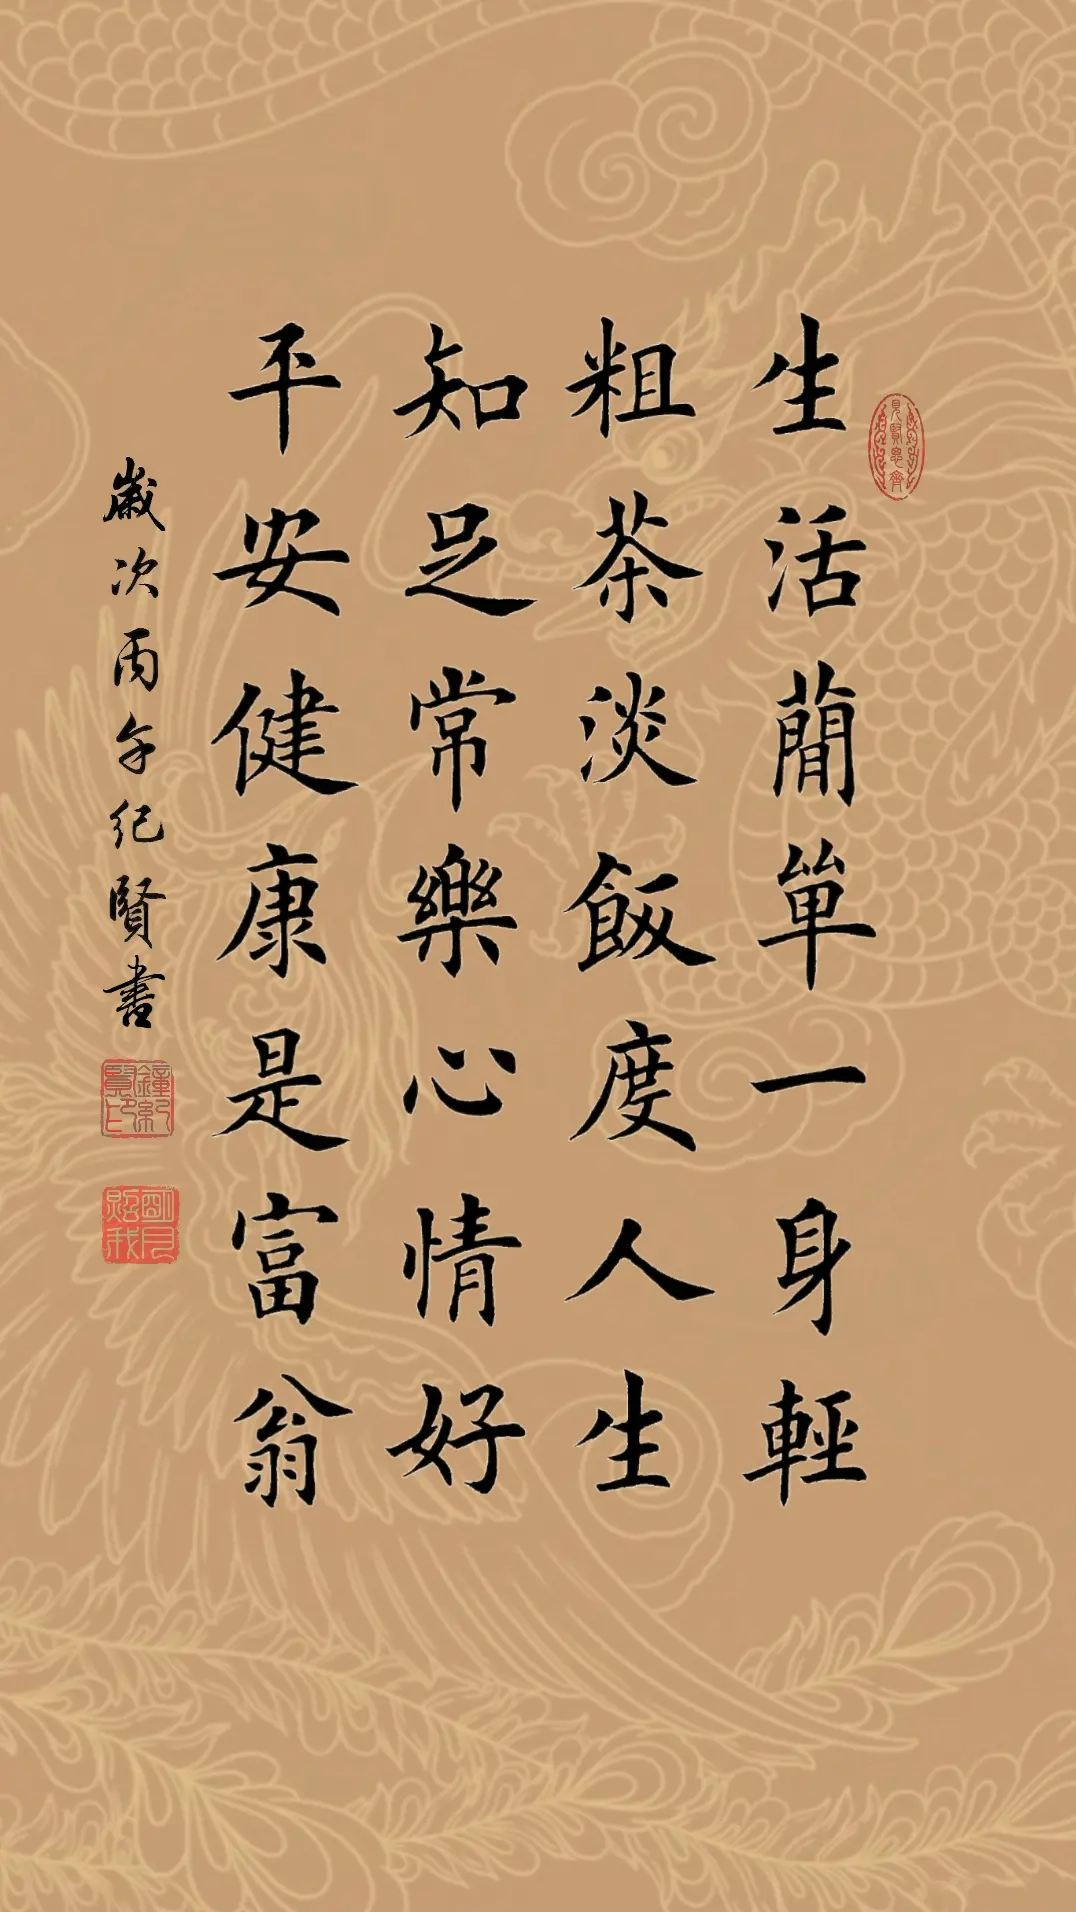 生活簡單一身輕
粗茶淡飯度人生
知足常樂心情好
平安健康是富翁
歲次丙午紀賢書
見賢思齊
鐘紀賢印